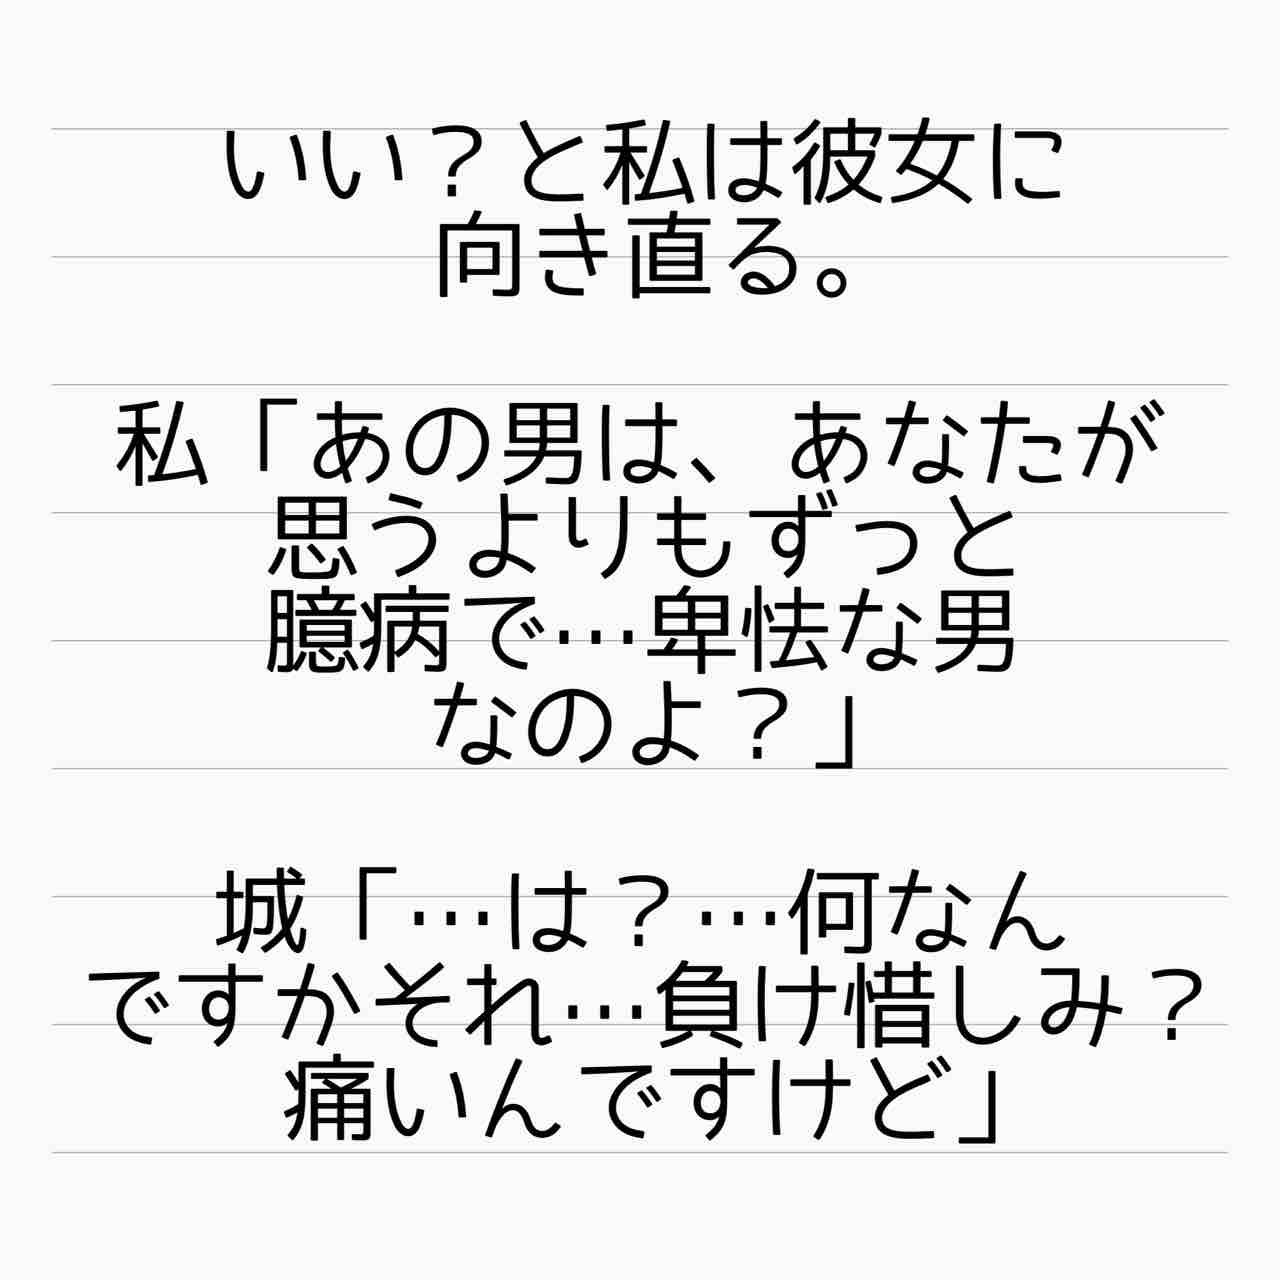 いい？と私は彼女に
向き直る。
私「あの男は、あなたが
思うよりもずっと
臆病で…卑怯な男
なのよ？」
城「…は？…何なん
ですかそれ…負け惜しみ？
痛いんですけど」